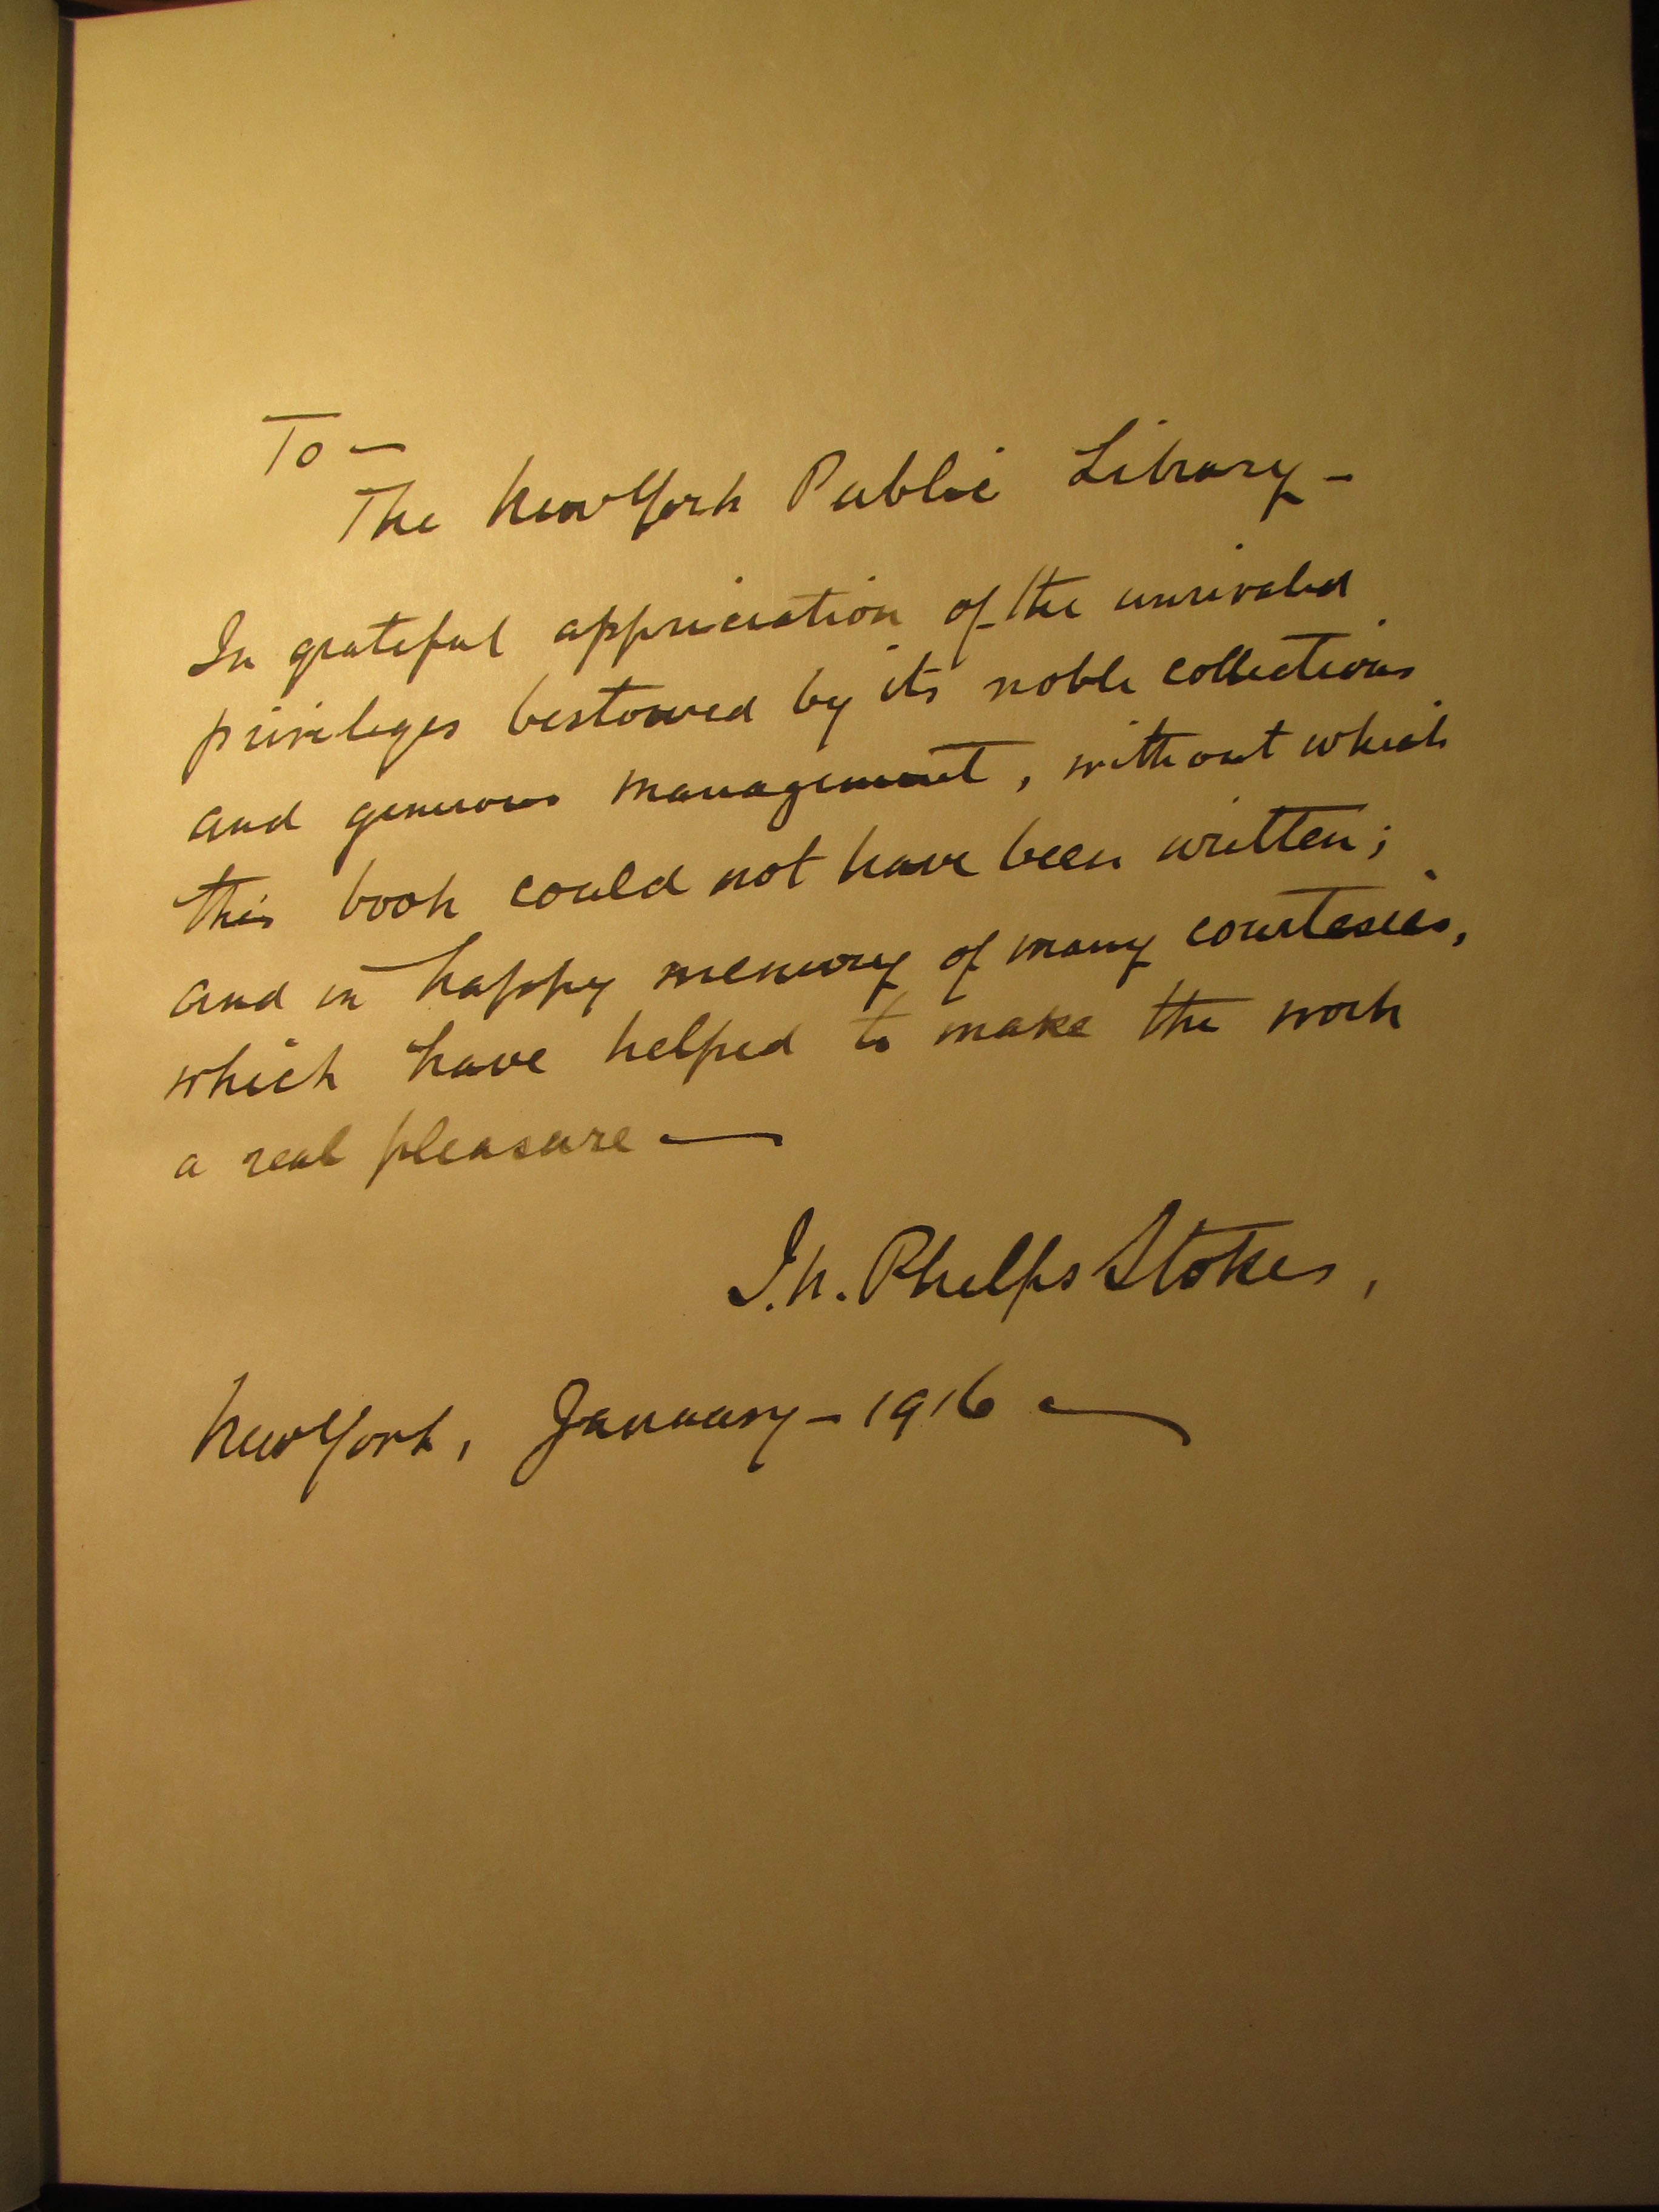 To —
The New York Public Library —
In grateful appreciation of the unrivaled
privileges bestowed by its noble collections
and generous management, without which
this book could not have been written;
and in happy memory of many courtesies,
which have helped to make the work
a real pleasure —
I. N. Phelps Stokes,
New York, January — 1916 —